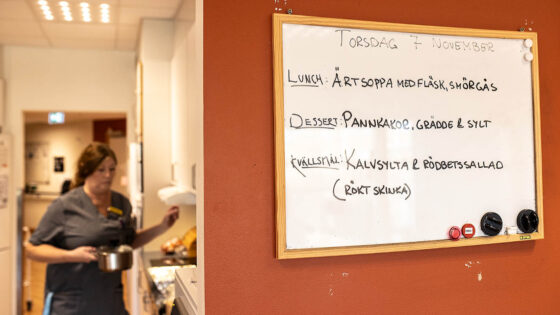 TORSDAG 7 NOVEMBER
LUNCH: ÄRTSOPPA MED FLÄSK, SMÖRGÅS
DESSERT: PANNKAKOR, GRÄDDE & SYLT
KVÄLLSMÅL: KALVSYLTA & RÖDBETSSALLAD
(RÖKT SKINKA)